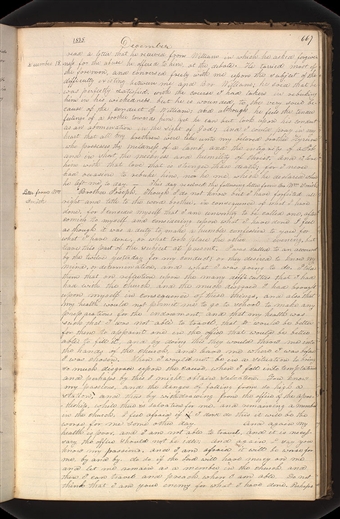 1835
447
December
had a letter that he received from William in which he asked forgive-
December 18
ness for the abuse he offered to him, at the debate. He tarried most of
the forenoon, and conversed freely with me upon the subject of the
difficulty existing between my and William, he said that he
was perfectly satisfied with the course I had taken in rebuking
him in his wickedness but he is wounded to the very soul be-
cause of the conduct of William, and although he feels the tender
feelings of a brother towards him yet he can but look upon his conduct
as an abomination in the sight of God; and I could pray in my
heart that all my brethren were like unto my beloved brother Hyrum,
who possesses the mildness of a lamb, and the integrity of a Job,
and in short the meekness and humility of Christ, and I love
him with that love that is stronger than death; for I never
had occasion to rebuke him, nor he me which he declared when
he left me to day.
Letter from Wm.
Smith
Brother Joseph. Though I do not know but I have forfeited all
right and title to the word brother, in consequence of what I have
done, for I consider myself that I am unworthy to be called one, after
coming to myself and considering upon what I have done I feel
as though it was a duty to make a humble confession to you for
what I have done, or what took place the other evening, but
leave this part of the subject at present. I was called to an account
by the twelve yesterday for my conduct; or they desired to know my
mind, or determination, and what I was going to do. I told
them that on reflection upon the many difficulties that I had
had with the church and the much disgrace I had brought
upon myself in consequence of these things, and also that
my health would not permit me to go to school to make any
preparations for the endowment and that my health was
such that I was not able to travel, that it would be better
for them to appoint one in the office that would be better
able to fill it, and by doing this they would throw me into
the hands of the church, and leave me where I was before
I was chosen. Then I would not be in a situation to bring
so much disgrace upon the cause, when I fell into temptation
and perhaps by this I might obtain salvation. You know
my passions, and the danger of falling from so high a
station, and thus by withdrawing from the office of the apos-
tleship, while there is salvation for me, and remaining a member
in the church. I feel afraid if I don't do this it will be the
worse for me some other day. And again my
health is poor, and I am not able to travel, and it is neces-
sary the office should not be idle. And again I say you
know my passions, and I am afraid it will be worse for
me by and by. Do so if the Lord will have mercy on me
and let me remain as a member in the church and
then I can travel and preach when I am able. Do not
think that I am your enemy for what I have done. Perhaps